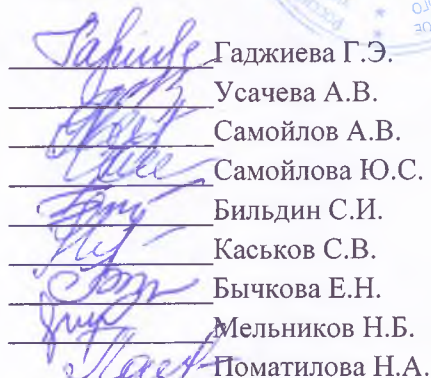 Гаджиева Г.Э.
Усачева А.В.
Самойлов А.В.
Самойлова Ю.С.
Бильдин С.И.
Каськов С.В.
Бычкова Е.Н.
Мельников Н.Б.
Поматилова Н.А.